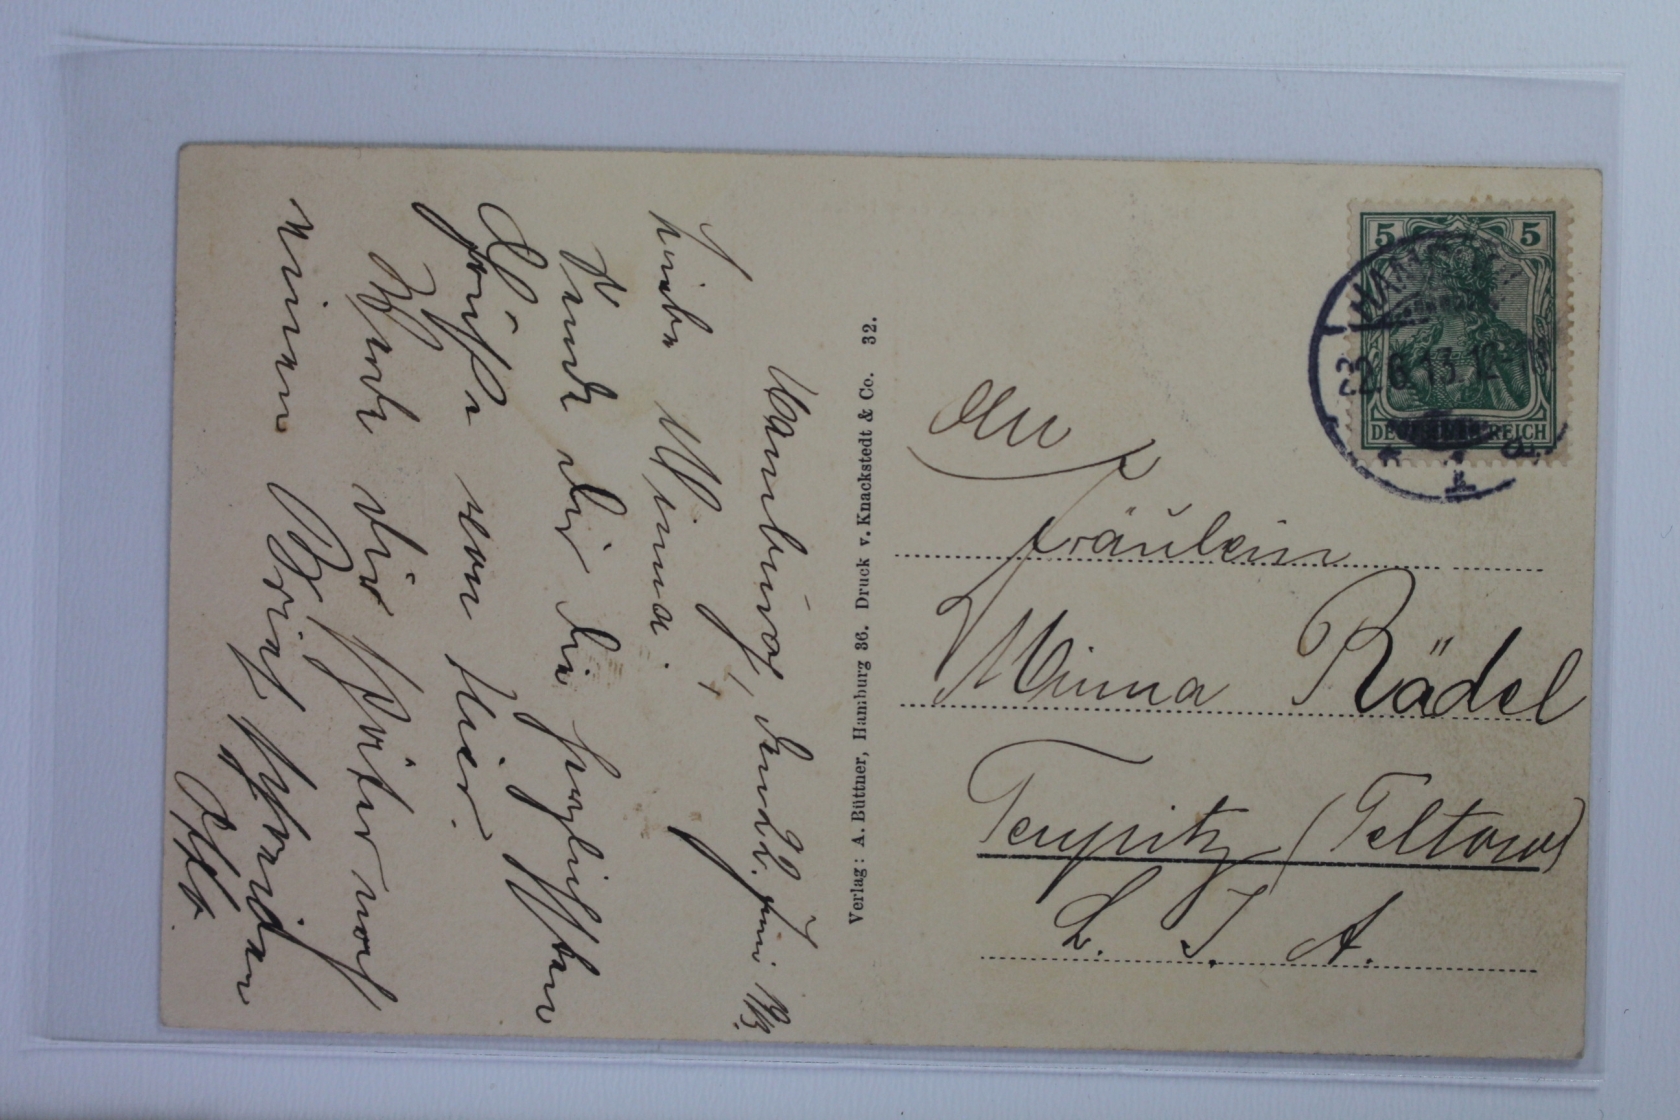 Hamburg, den 22. Juni 1913.
Liebe Minna!
Sende dir die herzlichsten
Grüße von hier.
Werde dir später noch
einen Brief schreiben
Otto.
Verlag: A. Büttner, Hamburg 36. Druck v. Knackstedt & Co. 32.
5 5
DEUTSCHES REICH
22.6.13.12
An
Fräulein
Minna Rädel
Teupitz (Teltow)
L. I. A.